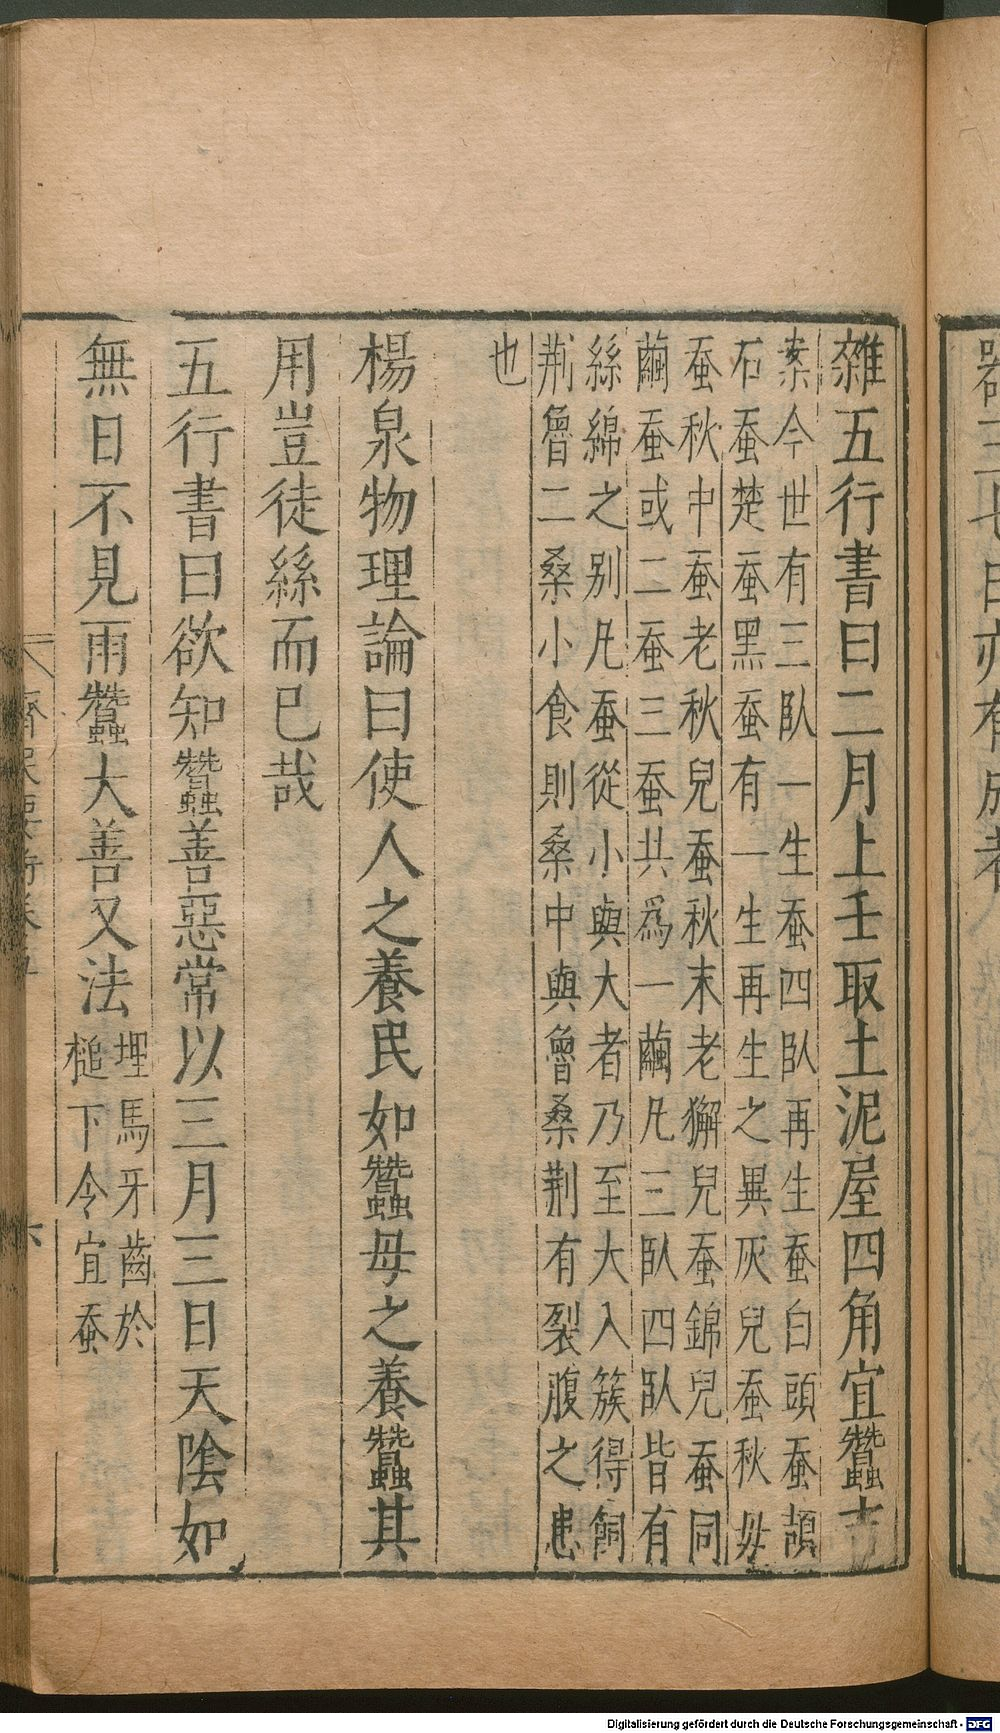 雜五行書曰二月上壬取土泥屋四角宜蠶吉
案今世有三臥一生蚕四臥再生蚕白頭蚕頡
石蚕楚蚕黑蚕有一生再生之異灰兒蚕秋毋
蚕秋中蚕老秋兒蚕秋末老獬兒蚕錦兒蚕同
繭蚕或二蚕三蚕共爲一繭凡三臥四臥皆有
絲綿之別凡蚕從小與大者乃至大入簇得飼
荆魯二桑小食則桑中與魯桑荆有裂腹之患
也
楊泉物理論曰使人之養民如蠶母之養蠶其
用豈徒絲而已哉
五行書曰欲知蠶善惡常以三月三日天陰如
無日不見雨蠶大善又法
埋馬牙齒於
槌下令宜蚕
齊民要術
六
Digitalisierung gefördert durch die Deutsche Forschungsgemeinschaft - DFG